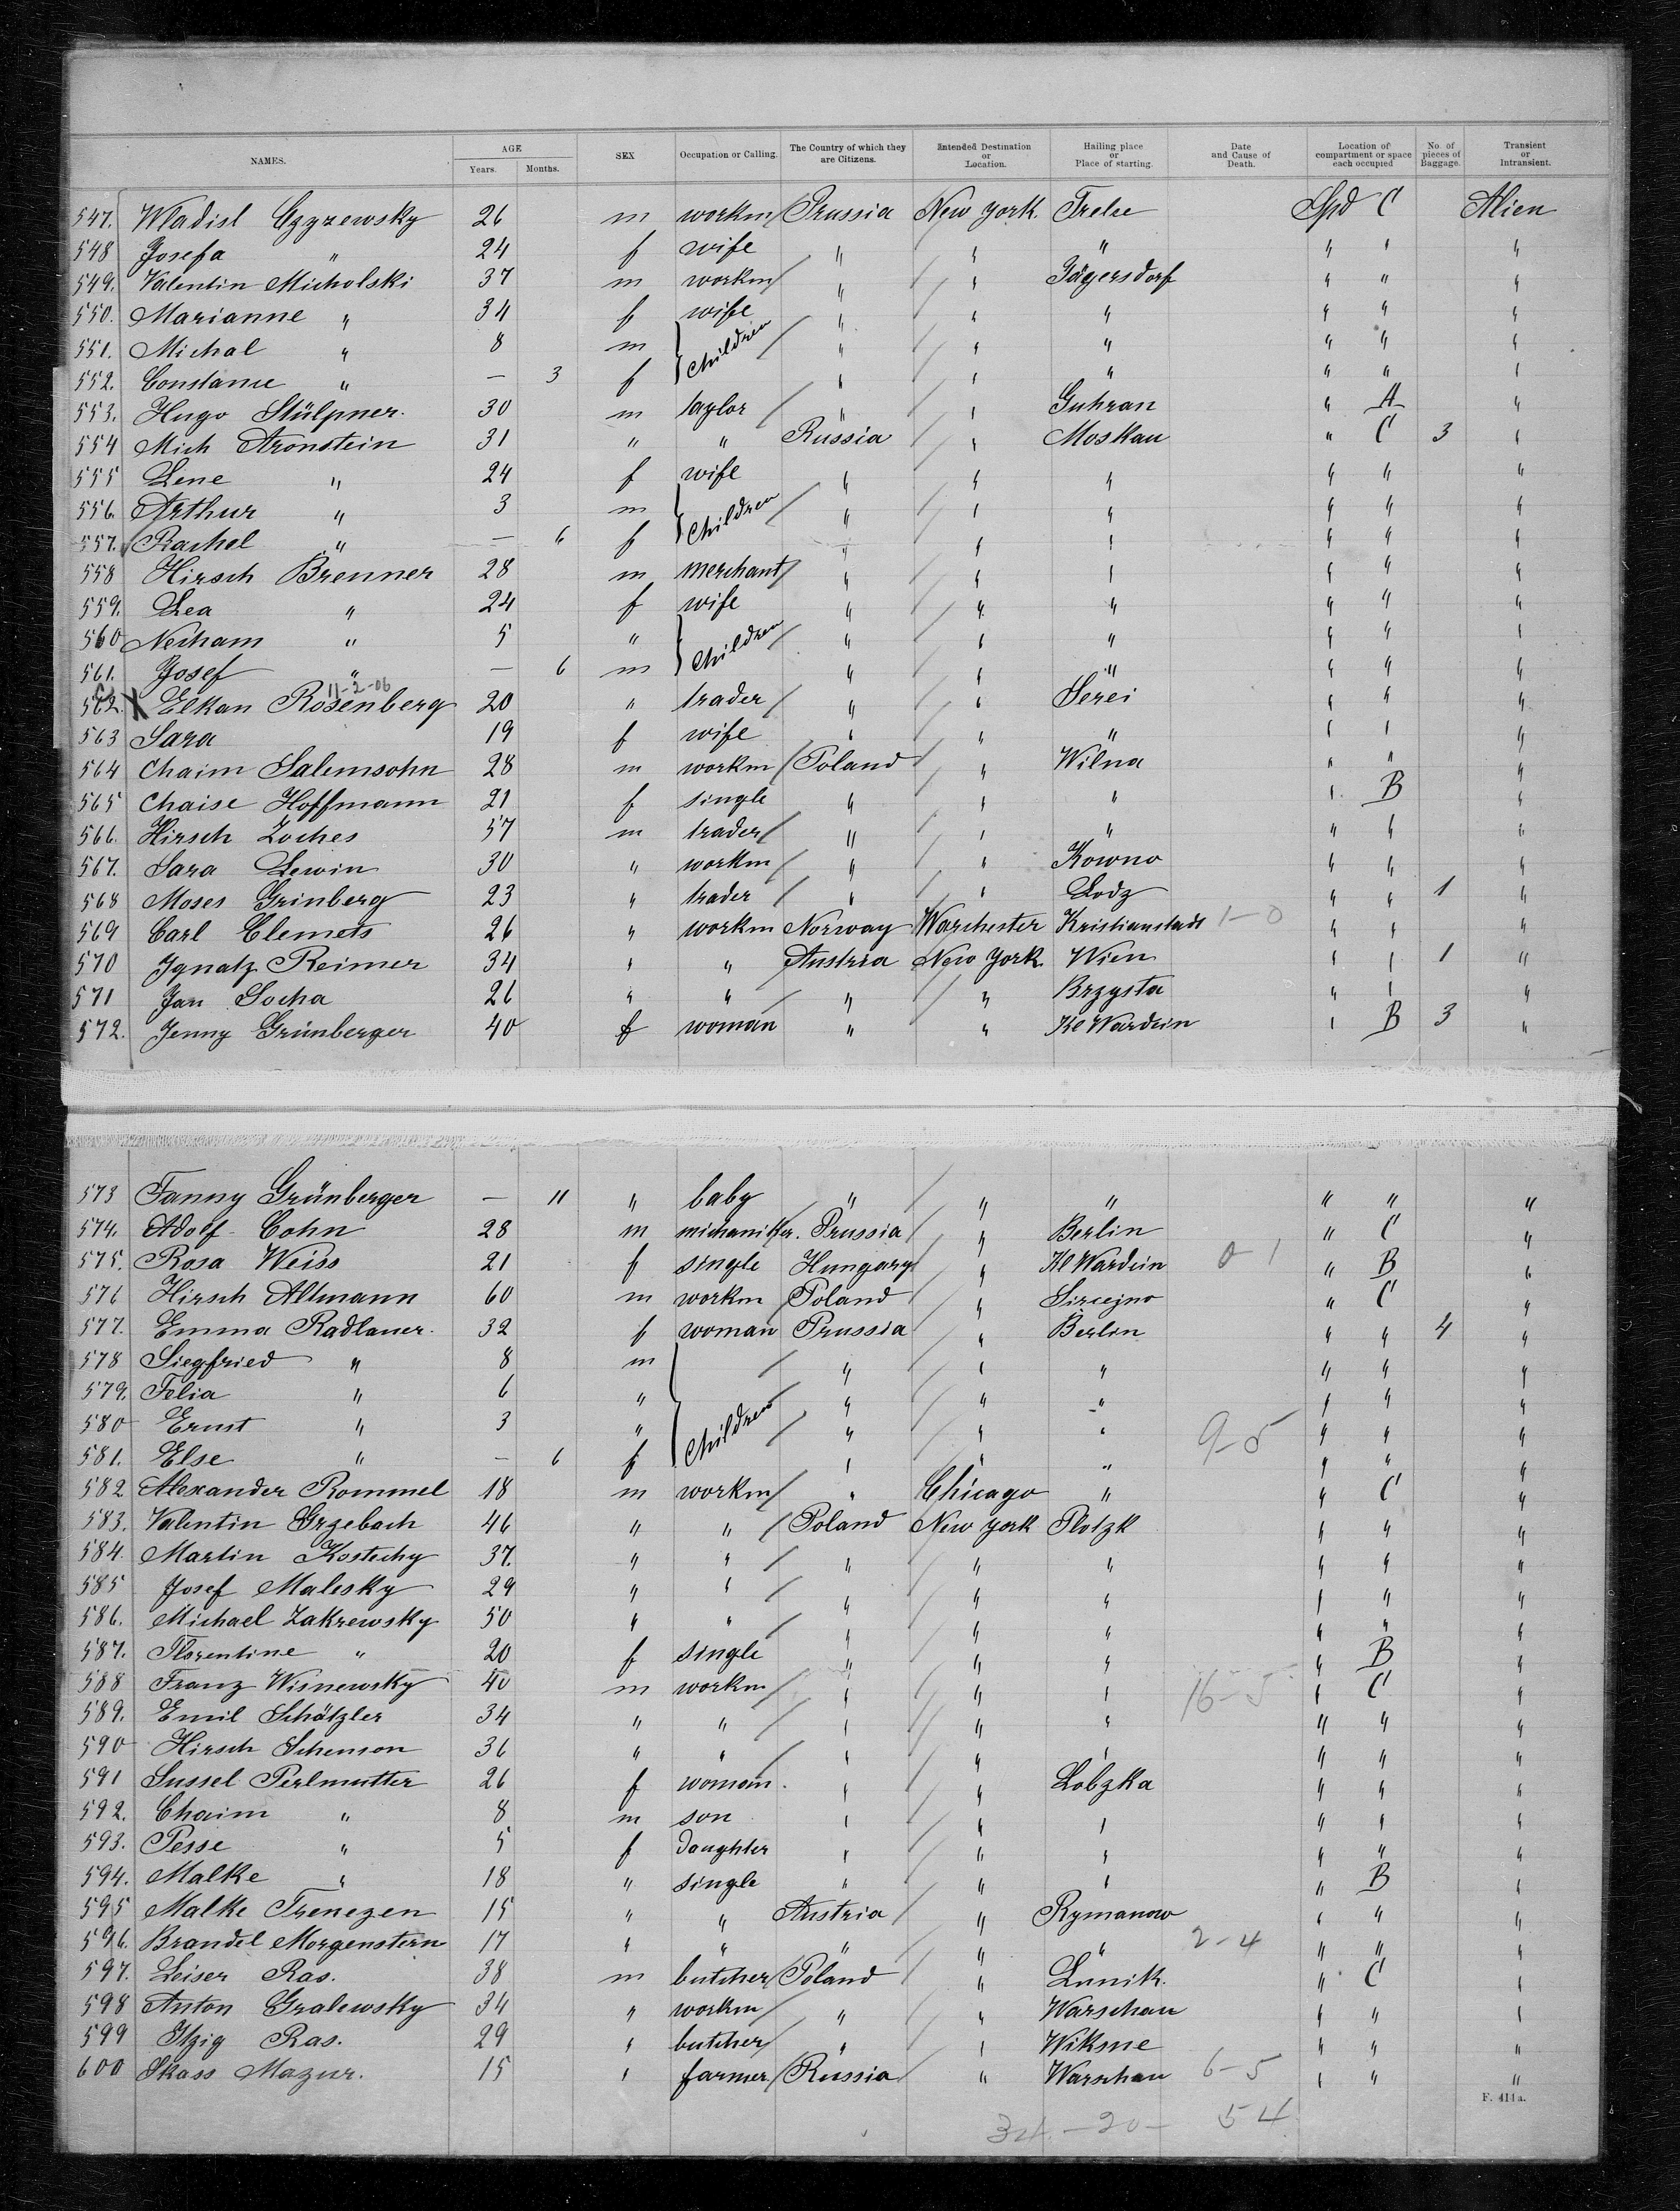 NAMES. AGE Years. Months. SEX Occupation or Calling. The Country of which they are Citizens. Intended Destination or Location. Hailing place or Place of starting. Date and Cause of Death. Location of compartment or space each occupied No. of pieces of Baggage. Transient or Intransient.
547. Wladisl Czyzewsky 26 m workm Prussia New York. Trelse Spd C Alien
548 Josefa " 24 f wife " " " " " "
549. Valentin Micholski 37 m workm " " Jägersdorf " " "
550. Marianne " 34 f wife " " " " " "
551. Michal " 8 m Children " " " " " "
552. Constanue " — 3 f " " " " " "
553. Hugo Stülpner. 30 m taylor " " Guhran " A "
554 Mich Aronstein 31 " " Russia " Moskau " C 3 "
555 Lene " 24 f wife " " " " " "
556. Arthur " 3 m Children " " " " " "
557. Rachel " — 6 f " " " " " "
558 Hirsch Brenner 28 m merchant " " " " " "
559. Lea " 24 f wife " " " " " "
560 Necham " 5 " Children " " " " " "
561. Josef " — 6 m " " " " " "
11-2-06
562. X Elkan Rosenberg 20 " trader " " Serei " " "
563 Sara 19 f wife " " " " " "
564 Chaim Salemsohn 28 m workm Poland " Wilna " " "
565 Chaise Hoffmann 21 f single " " " " B "
566. Hirsch Zoches 57 m trader " " " " " "
567. Sara Lewin 30 " workm " " Kowno " " "
568 Moses Grinberg 23 " trader " " Lodz " " 1 "
569 Carl Clemets 26 " workm Norway Warchester Kristianstadt 1-0 " " "
570 Jgnatz Reimer 34 " " Austria New York. Wien " " 1 "
571 Jan Socha 26 " " " " Brzysta " " "
572. Jenny Grünberger 40 f woman " " Kl Wardein " B 3 "
573 Fanny Grünberger — 11 " baby " " " " " "
574. Adolf Cohn 28 m Prussia " Berlin " C "
575. Rosa Weiss 21 f single Hungary " Kl Wardein 0-1 " B "
576 Hirsch Altmann 60 m workm Poland " Sircejno " C "
577. Emma Radlauer. 32 f woman Prussia " Berlin " " 4 "
578 Siegfried " 8 m " " " " " "
579. Felia " 6 " " " " " " "
580 Ernst " 3 " Children " " " 9-5 " " "
581. Else " — 6 f " " " " " "
582 Alexander Rommel 18 m workm " Chicago " " C "
583. Valentin Grzebach 46 " " Poland New York Plotzk " " "
584. Martin Kostechy 37. " " " " " " " "
585 Josef Malesky 29 " " " " " " " "
586. Michael Zakrewsky 50 " " " " " " " "
587. Florentine " 20 f single " " " " B "
588 Franz Wisnewsky 40 m workm " " " 16-5 " C "
589. Emil Schätzler 34 " " " " " " " "
590 Hirsch Schenson 36 " " " " " " " "
591 Sussel Perlmutter 26 f woman. " " Lobzka " " "
592. Chaim " 8 m son " " " " " "
593. Pesse " 5 f daughter " " " " " "
594. Malke " 18 " single " " " " B "
595 Malke Trenezen 15 " " Austria " Rymanow " " "
596. Brandel Morgenstern 17 " " " " " 2-4 " " "
597. Leiser Ras. 38 m butcher Poland " Lunik. " C "
598 Anton Gralewsky 34 " workm " " Warschau " " "
599 Itzig Ras. 29 " butcher " " Wiksne " " "
600 Skass Mazur. 15 " farmer Russia " Warschau 6-5 " " "
F. 411a.
34-20- 54